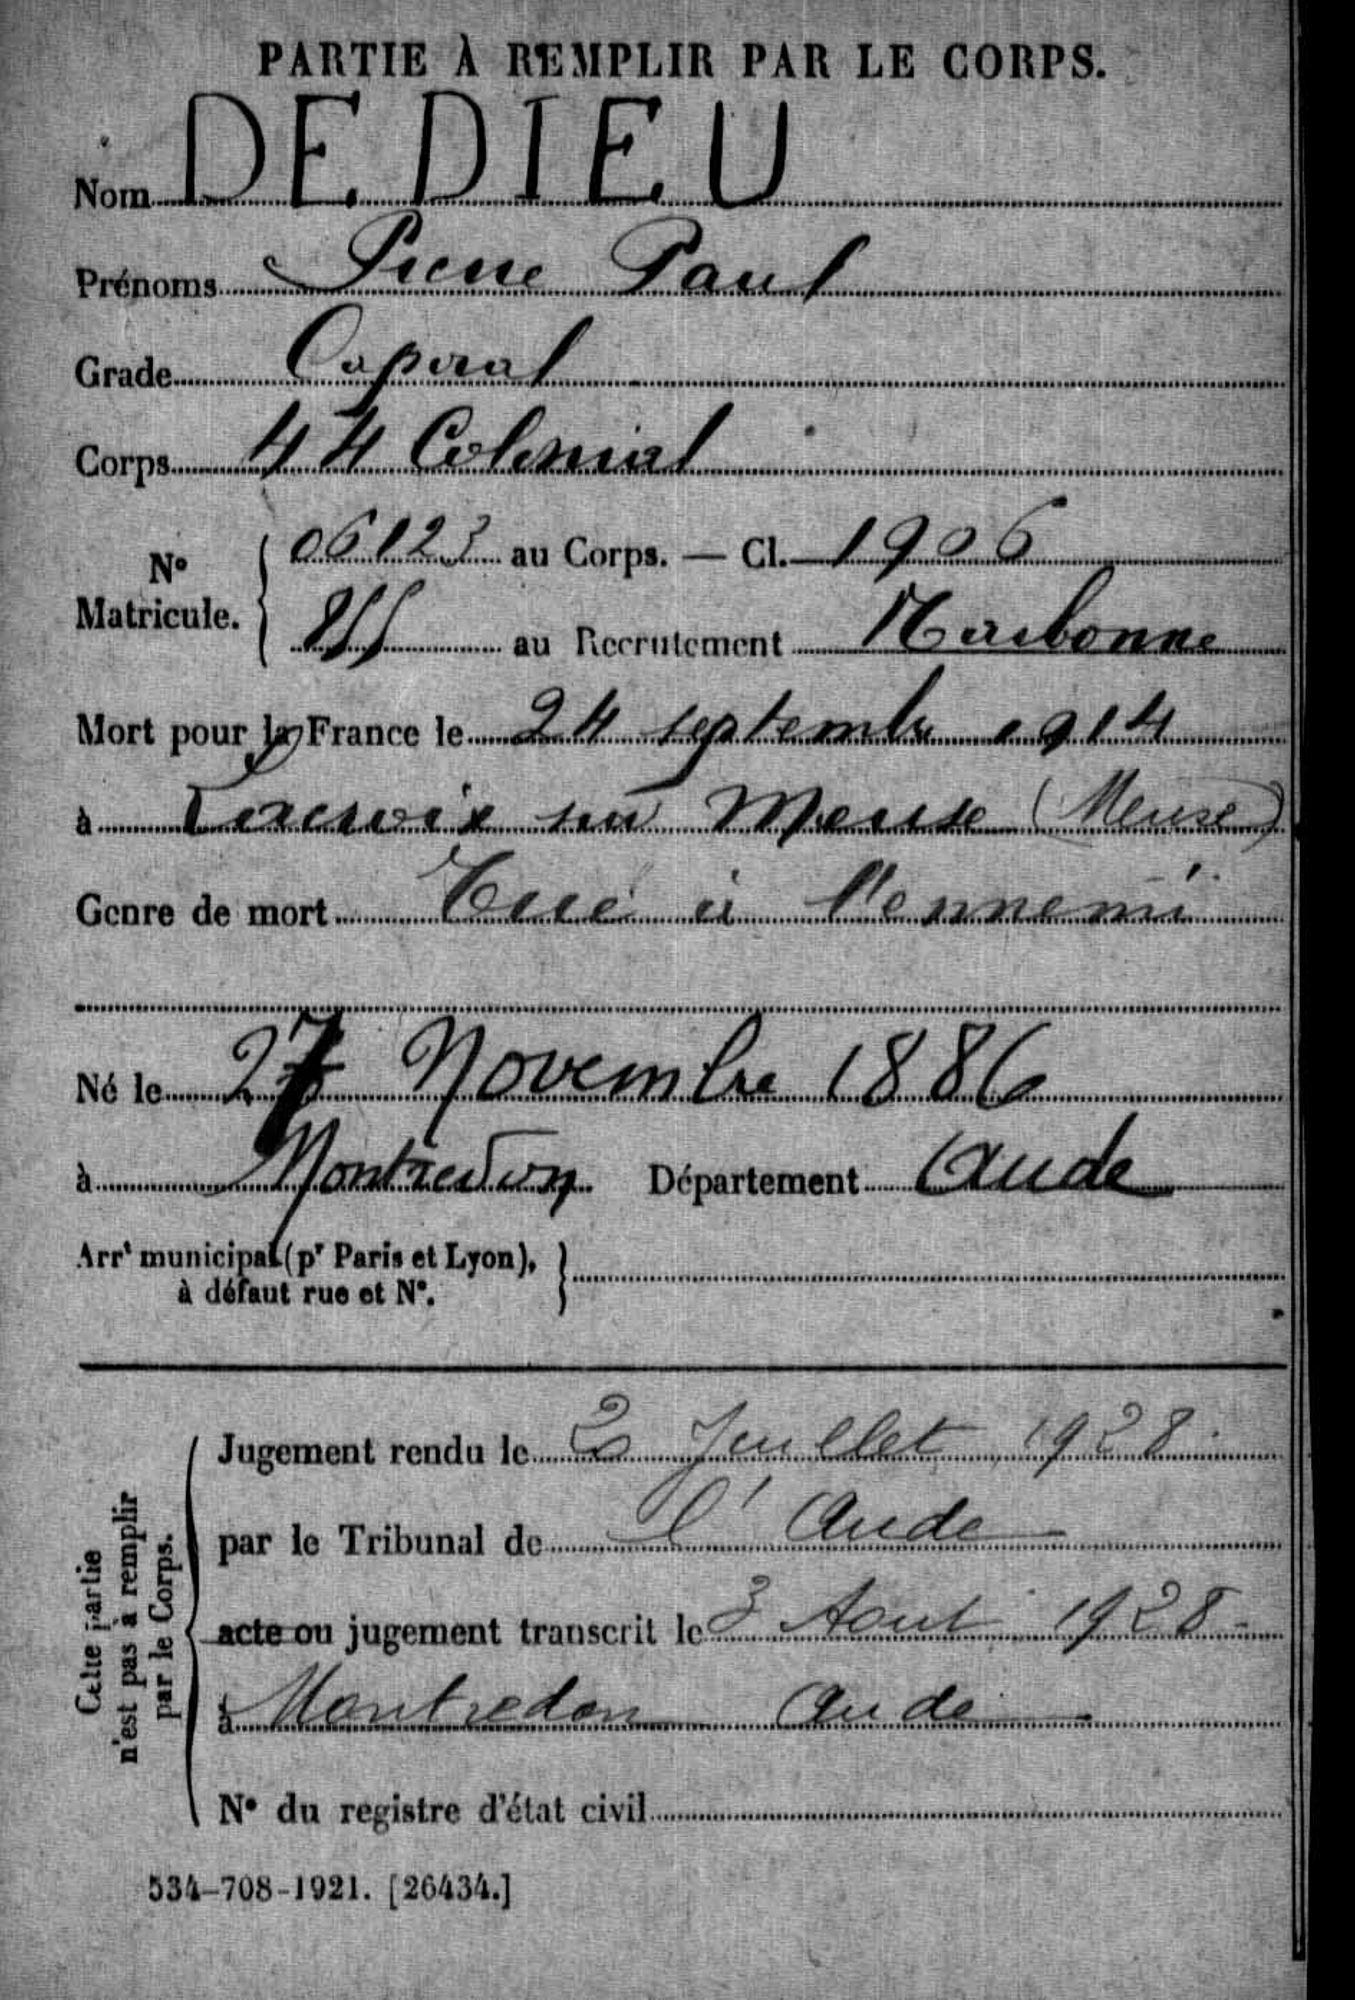 PARTIE À REMPLIR PAR LE CORPS.
Nom DEDIEU
Prénoms Pierre Paul
Grade Caporal
Corps 44 Colonial
N° Matricule. { 06123 au Corps. — Cl. 1906
855 au Recrutement Narbonne
Mort pour la France le 24 septembre 1914
à Lacroix sur Meuse (Meuse)
Genre de mort Tué à l'ennemi
Né le 27 Novembre 1886
à Montredon Département Aude
Arrt municipal (pr Paris et Lyon), }
à défaut rue et N°.
Cette partie
n'est pas à remplir
par le Corps.
Jugement rendu le 2 Juillet 1928
par le Tribunal de l'Aude
acte ou jugement transcrit le 3 Aout 1928
à Montredon Aude
N° du registre d'état civil
534-708-1921. [26434.]